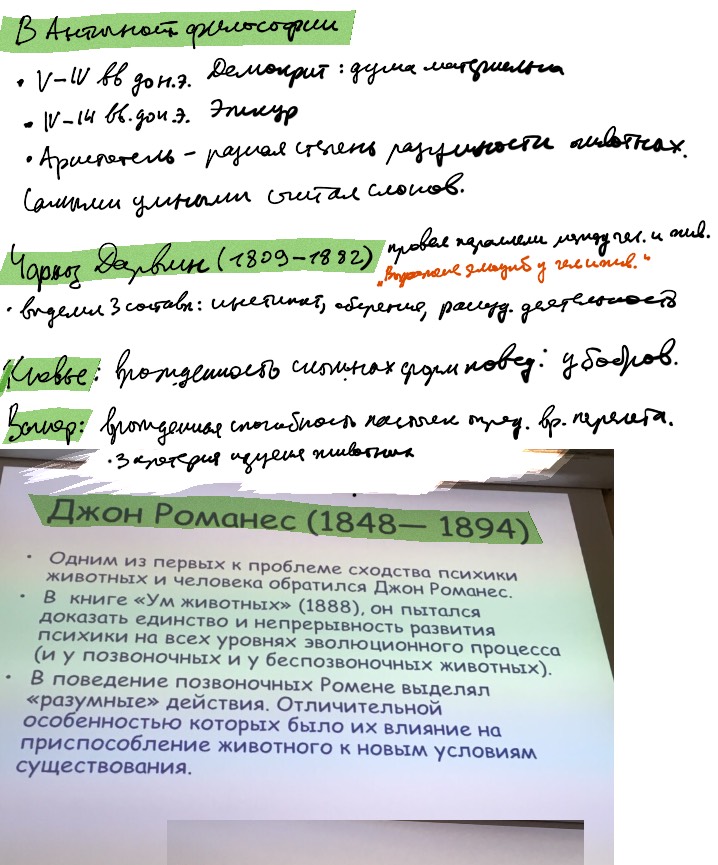 В Античной философии
• V–IV вв до н.э. Демокрит: душа материальна
• IV–III вв. до н.э. Эпикур
• Аристотель – разная степень разумности животных.
Самыми умными считал слонов.
Чарльз Дарвин (1809–1882) провел параллели между чел. и жив.
„Выражение эмоций у чел и жив.“
• выделил 3 составл: инстинкт, обучение, рассуд. деятельность
Кювье: врожденность сложных форм повед: у бобров.
Вагнер: врожденная способность ласточек опред. вр. перелета.
• 3 критерия изучения животных
Джон Романес (1848— 1894)
• Одним из первых к проблеме сходства психики
животных и человека обратился Джон Романес.
• В книге «Ум животных» (1888), он пытался
доказать единство и непрерывность развития
психики на всех уровнях эволюционного процесса
(и у позвоночных и у беспозвоночных животных).
• В поведение позвоночных Ромене выделял
«разумные» действия. Отличительной
особенностью которых было их влияние на
приспособление животного к новым условиям
существования.